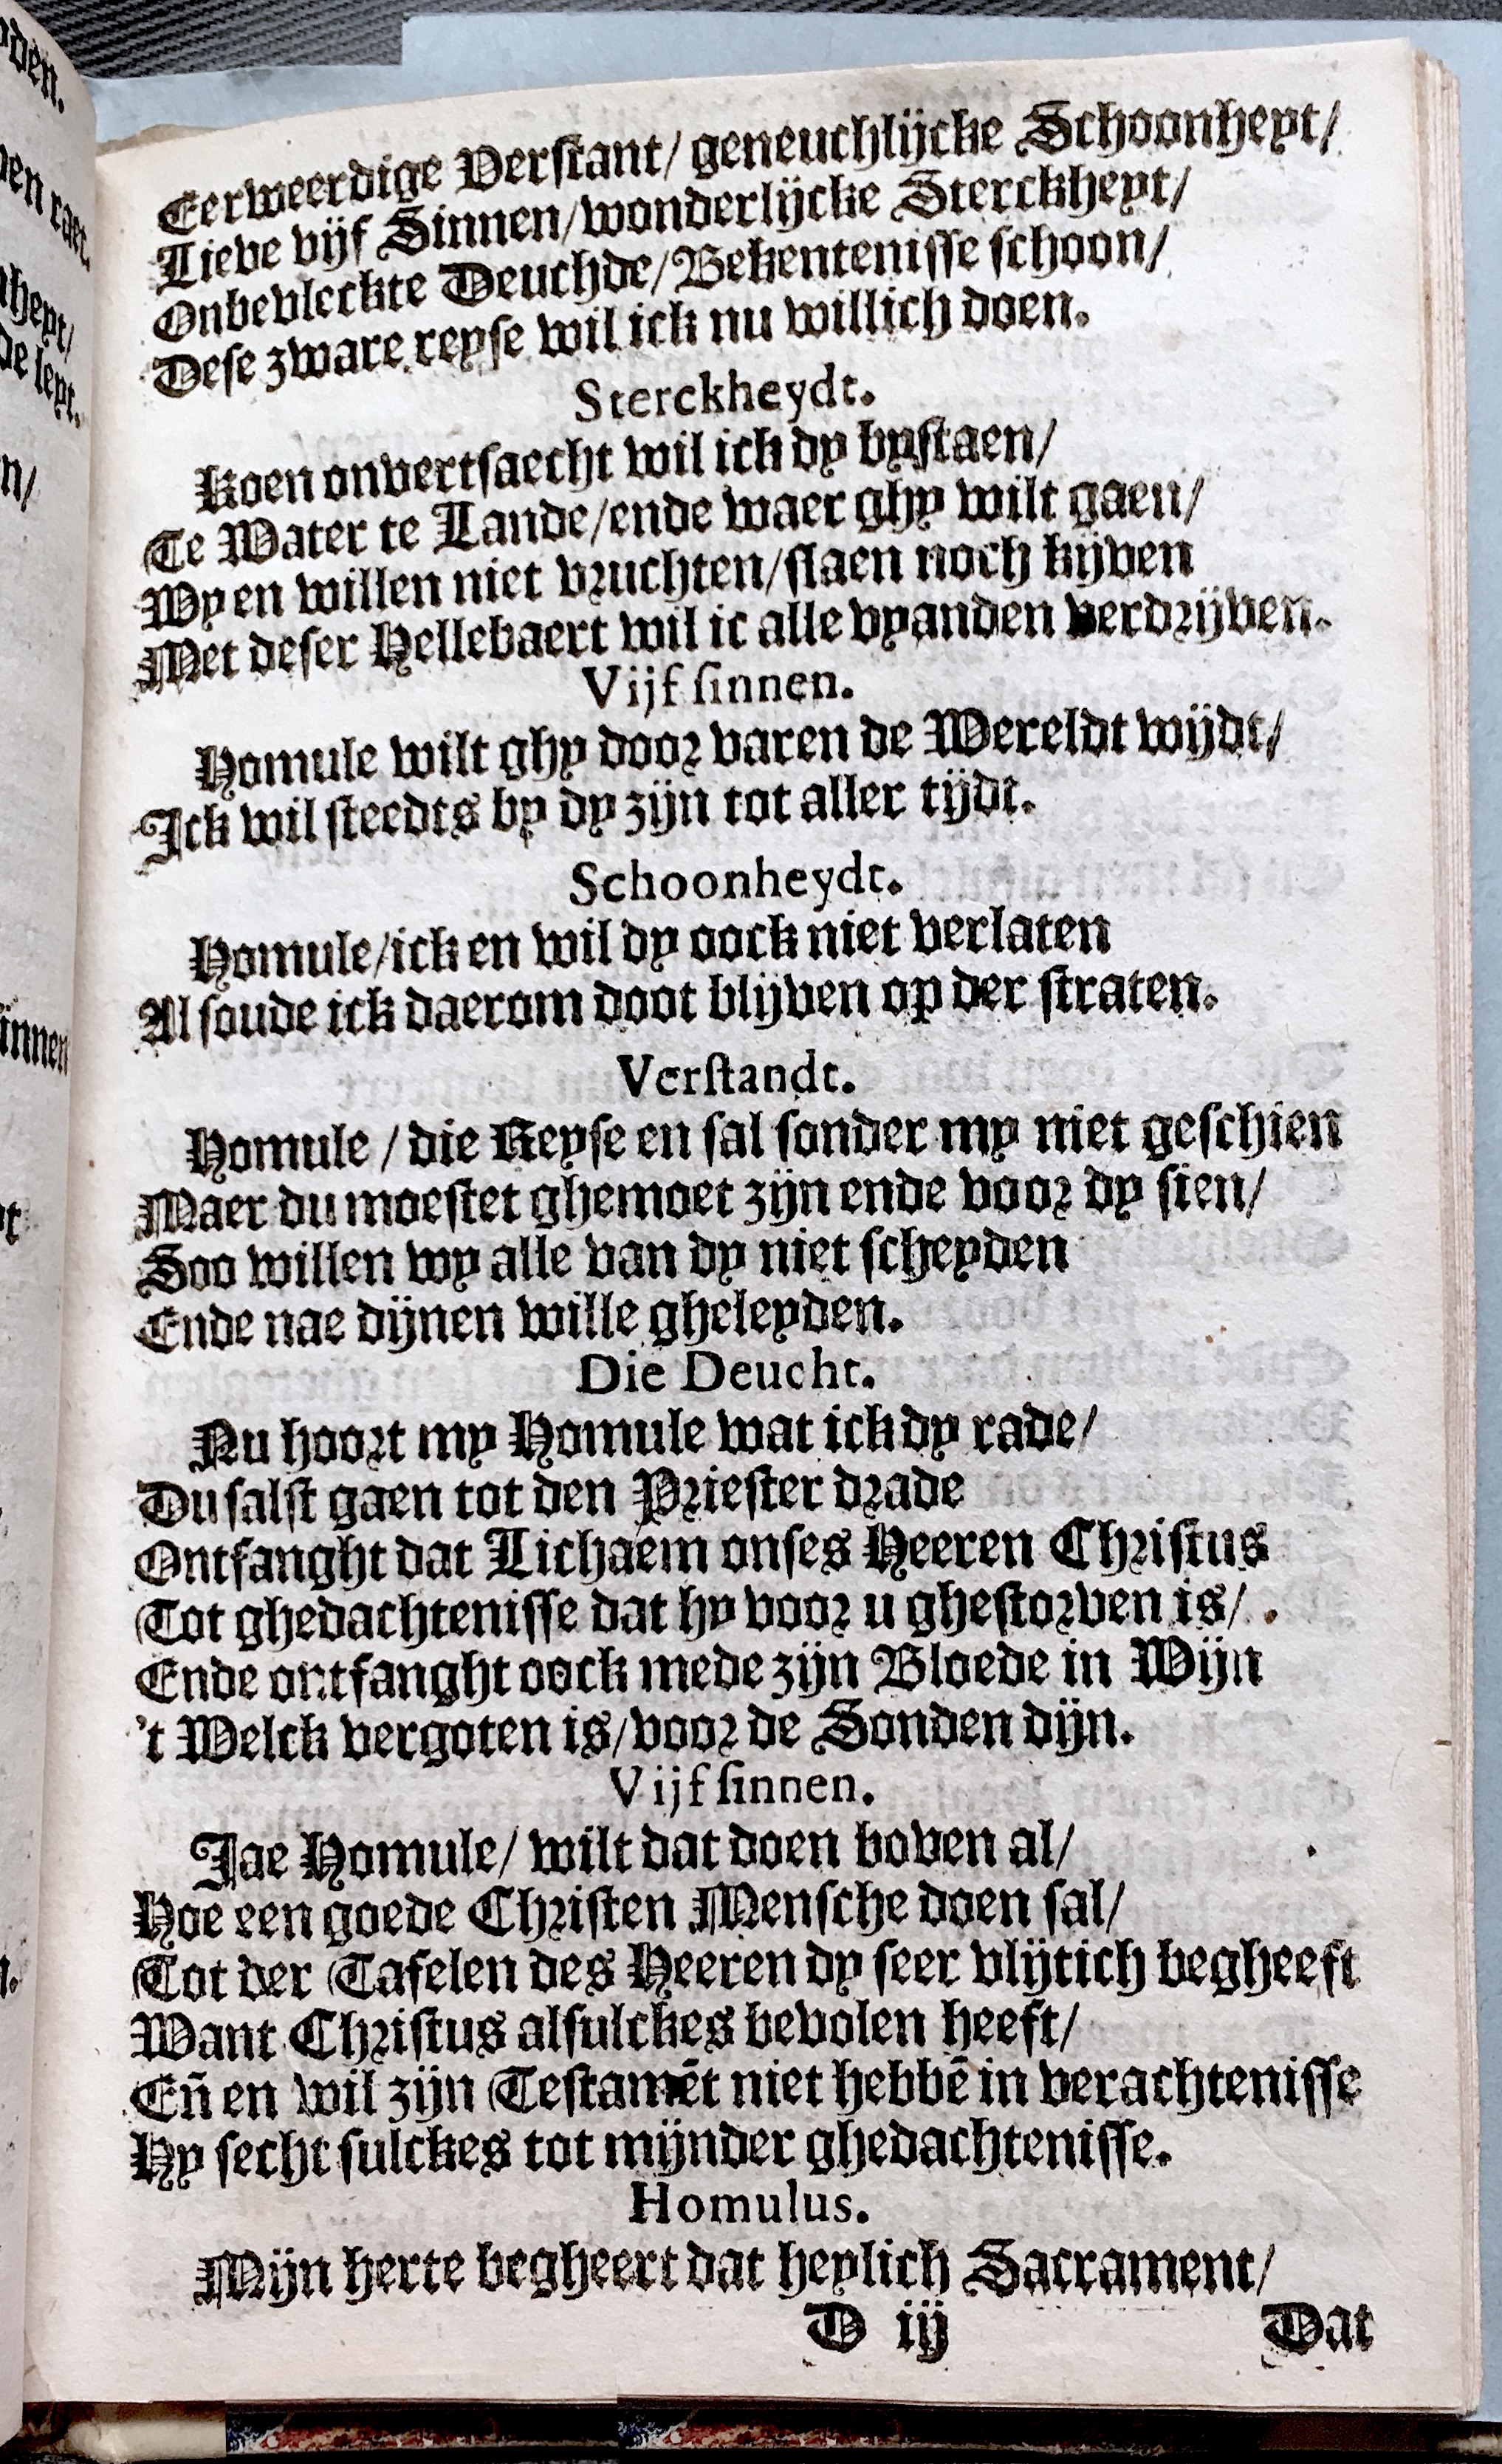 Eerweerdige Verstant/ geneuchlijcke Schoonheyt/
Lieve vijf Sinnen/ wonderlijcke Sterckheyt/
Onbevleckte Deuchde/ Bekentenisse schoon/
Dese zware reyse wil ick nu willich doen.
Sterckheydt.
Koen onvertsaecht wil ick dy bystaen/
Te Water te Lande/ ende waer ghy wilt gaen/
Wy en willen niet vruchten/ slaen noch kijven
Met deser Hellebaert wil ic alle vyanden verdrijven.
Vijf sinnen.
Homule wilt ghy door varen de Wereldt wijdt/
Ick wil steedts by dy zijn tot aller tijdt.
Schoonheydt.
Homule/ ick en wil dy oock niet verlaten
Al soude ick daerom doot blijven op der straten.
Verstandt.
Homule / die Reyse en sal sonder my niet geschien
Maer du moestet ghemoet zijn ende voor dy sien/
Soo willen wy alle van dy niet scheyden
Ende nae dijnen wille gheleyden.
Die Deucht.
Nu hoort my Homule wat ick dy rade/
Du salst gaen tot den Priester drade
Ontfanght dat Lichaem onses Heeren Christus
Tot ghedachtenisse dat hy voor u ghestorven is/
Ende ontfanght oock mede zijn Bloede in Wijn
't Welck vergoten is/ voor de Sonden dijn.
Vijf sinnen.
Jae Homule/ wilt dat doen boven al/
Hoe een goede Christen Mensche doen sal/
Tot der Tafelen des Heeren dy seer vlijtich begheeft
Want Christus alsulckes bevolen heeft/
Eñ en wil zijn Testamēt niet hebbē in verachtenisse
Hy secht sulckes tot mijnder ghedachtenisse.
Homulus.
Mijn herte begheert dat heylich Sacrament/
D iij
Dat